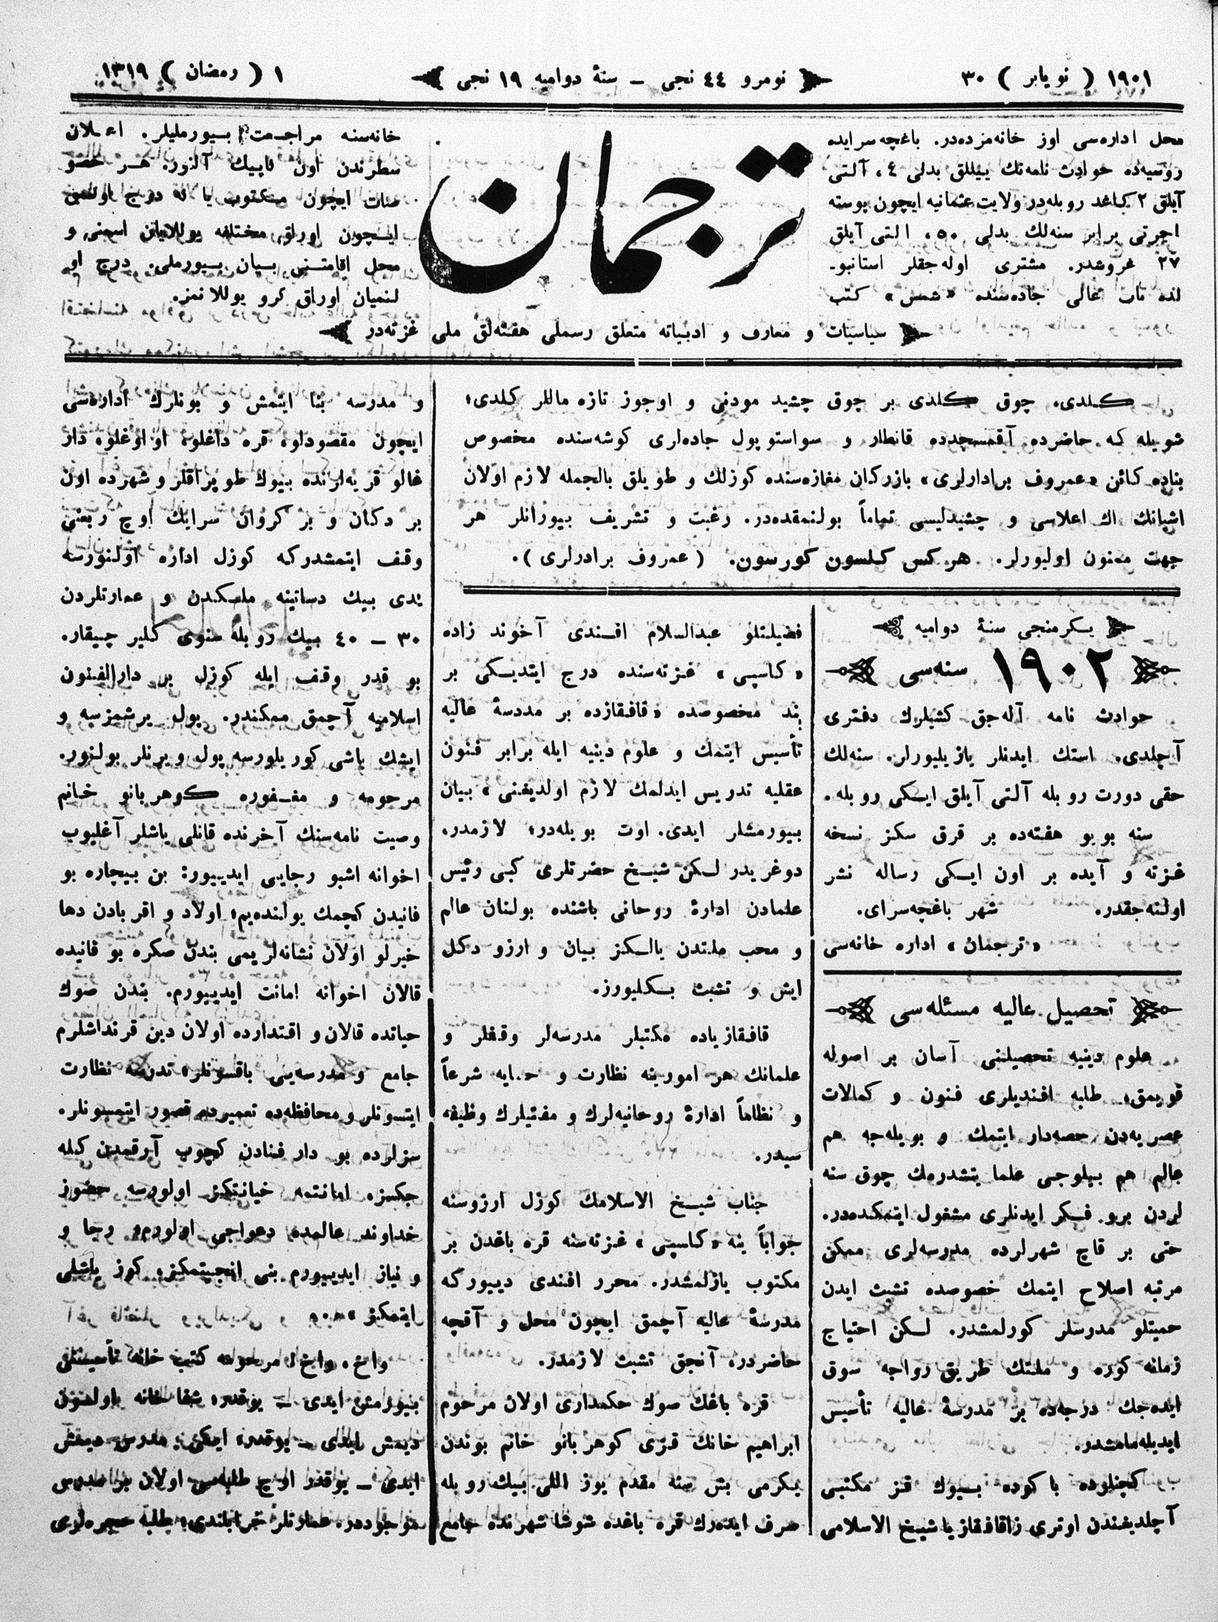 ١٩٠١ ( نویابر ) ٣٠
نومرو ٤٤ نجی ـ سنهٔ دوامیه ١٩ نجی
١ ( رمضان ) ١٣١٩
محل اداره‌سی اوز خانه‌مزده‌در. باغچه‌سرایده
روسیه‌ده حوادث نامه‌نك ییللق بدلی ٤، آلتی
آیلق ٢ كاغد روبله‌در ولایت عثمانیه ایچون پوسته
اجرتی برابر سنه‌لك بدلی ٥٠، التی آیلق
٢٧ غروشدر. مشتری اوله‌جقلر استانبو-
لده باب عالی جاده‌سنده «شمس» كتب
ترجمان
خانه‌سنه مراجعت بیورملیلر. اعلان
سطرندن اون كاپیك آلنور. هر خصو
صات ایچون مكتوب یا له درج اولنمق
ایچون اوراق مختلفه یوللایان اسمنی و
محل اقامتنی بیان بیورملی. درج او
لنمیان اوراق كرو یوللانمز.
سیاسیات و معارف و ادبیاته متعلق رسملی هفته‌لق ملی غزته‌در
كلدی. چوق كلدی بر چوق چشید مودنی و اوجوز تازه ماللر كلدی؛
شویله كه حاضرده آقمسجدده قانطار و سواستوپول جاده‌لری كوشه‌سنده مخصوص
بناده كائن «عمروف برادارلری» بازركان مغازه‌سنده كوزلك و طویلق بالجمله لازم اولان
اشیانك اك اعلاسی و چشیدلیسی تماماً بولنمقده‌در. رغبت و تشریف بیورانلر هر
جهت ممنون اولیورلر. هر كس كلسون كورسون. ( عمروف برادرلری ).
یكرمنجی سنهٔ دوامیه
١٩٠٢ سنه‌سی
حوادث نامه آله‌جق كشیلرك دفتری
آچلدی. استك ایدنلر یازیلیورلر. سنه‌لك
حقی دورت روبله آلتی آیلق ایكی روبله.
سنه بویو هفته‌ده بر قرق سكز نسخه
غزته و آیده بر اون ایكی رساله نشر
اولنه‌جقدر. شهر باغچه‌سرای.
«ترجمان» اداره خانه‌سی
تحصیل عالیه مسئله‌سی
علوم دینیه تحصیلنی آسان بر اصوله
قویمق، طلبه افندیلری فنون و كمالات
عصریه‌دن حصه‌دار ایتمك و بویله‌جه هم
عالم هم بیلوجی علما یتشدرمك چوق سنه
لردن برو فكر ایدنلری مشغول ایتمكده‌در.
حتی بر قاچ شهرلرده مدرسه‌لری ممكن
مرتبه اصلاح ایتمك خصوصده تشبث ایدن
حمیتلو مدرسلر كورلمشدر. لكن احتیاج
زمانه كوره و ملتك طریق رواجه سوق
ایده‌جك درجه‌ده بر مدرسهٔ عالیه تأسیس
ایدیله‌مامشدر.
كچنلرده باكوده بیوك قز مكتبی
آچلدیغندن اوتری زاقافقازیا شیخ الاسلامی
فضیلتلو عبدالسلام افندی آخوند زاده
«كاسپی» غزته‌سنده درج ایتدیكی بر
بند مخصوصده «قافقازده بر مدرسهٔ عالیه
تأسیس ایتمك و علوم دینیه ایله برابر فنون
عقلیه تدریس ایدلمك لازم اولدیغنی» بیان
بیورمشلر ایدی. اوت بویله‌در؛ لازمدر.
دوغریدر لكن شیخ حضرتلری كبی رئیس
علمادن ادارهٔ روحانی باشنده بولنان عالم
و محب ملتدن یالكز بیان و ارزو دكل
ایش و تشبث بكلیورز.
قافقازیاده مكتبلر مدرسه‌لر وقفلر و
علمانك هر امورینه نظارت و حمایه شرعاً
و نظاماً ادارهٔ روحانیه‌لرك و مفتیلرك وظیفه
سیدر.
جناب شیخ الاسلامك كوزل ارزوسنه
جواباً ینه «كاسپی» غزته‌سنه قره باغدن بر
مكتوب یازلمشدر. محرر افندی دییوركه
مدرسهٔ عالیه آچمق ایچون محل و آقچه
حاضردر؛ آنجق تشبث لازمدر.
قره باغك صوك حكمداری اولان مرحوم
ابراهیم خانك قزی كوهر بانو خانم بوندن
یكرمی بش سنه مقدم یوز اللی بیك روبله
صرف ایده‌رك قره باغده شوشا شهرنده جامع
و مدرسه بنا ایتمش و بونلرك اداره‌سی
ایچون مقصودلو، قره داغلو، او اوغلو، داز
غالو قریه‌لرنده بیوك طوپراقلر و شهرده اون
بر دكان و بر كروان سرایك اوچ ربعنی
وقف ایتمشدركه كوزل اداره اولنورسه
یدی بیك دساتینه ملكدن و عمارتلردن
٣٠ ـ ٤٠ بیك روبله سنوی كلیر چیقار.
بو قدر وقف ایله كوزل بر دارالفنون
اسلامیه آچمق ممكندر. یول یرشمزسه و
ایشك باشی كوریلورسه پول ویرنلر بولنور.
مرحومه و مغفوره كوهر بانو خانم
وصیت نامه‌سنك آخرنده قانلی یاشلر آغلیوب
اخوانه اشبو رجایی ایدییور: بن بیچاره بو
فانیدن كچمك یولنده‌یم؛ اولاد و اقربادن دها
خیرلو اولان نشانه‌لریمی بندن صكره بو فانیده
قالان اخوانه امانت ایدییورم. بندن صوك
حیاتده قالان و اقتدارده اولان دین قرنداشلرم
جامع و مدرسه‌یی باقسونلر؛ تدرسه نظارت
ایتسونلر و محافظه‌ده تعمیرده قصور ایتمسونلر.
سزلرده بو دار فنادن كچوب آرقمدن كیله
جكسز. امانتمه خیانتكز اولورسه حضور
خداوند عالمده دعواجی اولورم و رجا و
و نیاز ایدییورم بنی انجیتمكز، كوز یاشلی
ایتمكز
واخ، واخ! مرحومه كتب خانه تأسیسنی
بیورمش ایدی ـ یوقدر؛ شفا خانه اولسون
دیمش ایدی ـ یوقدر؛ ایكی مدرس دیمش
ایدی ـ یوقدر اوچ طلبه‌سی اولان بر مدرس
موجوددر. عمارتلر خرابلندی؛ طلبه حجره‌لری